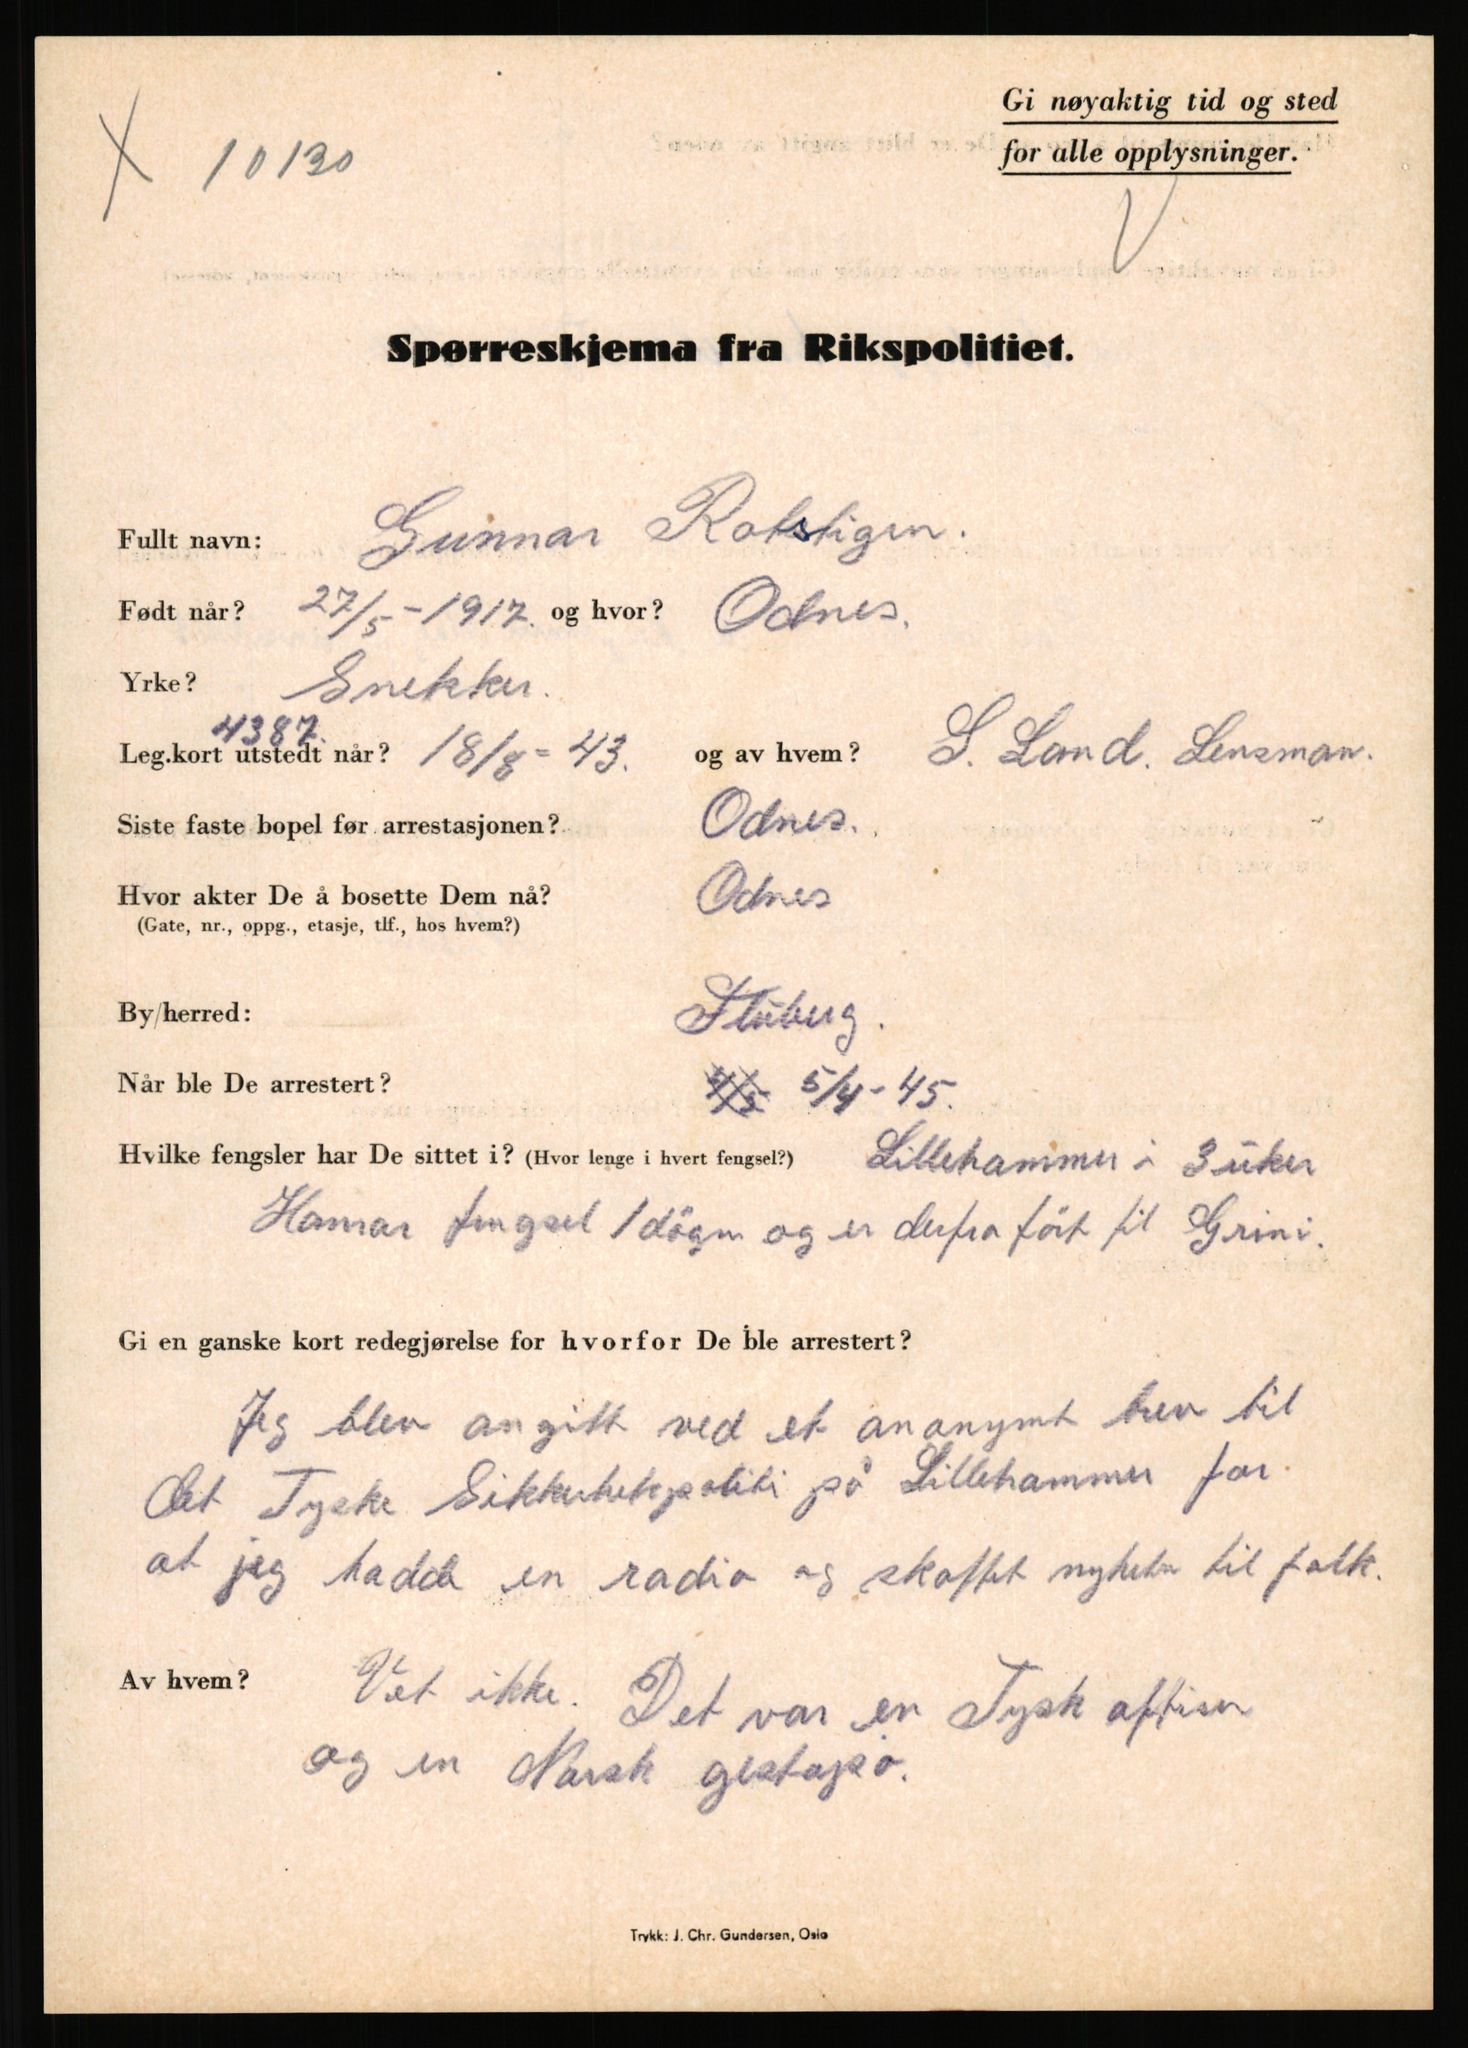 Gi nøyaktig tid og sted
for alle opplysninger.
X 10130
V
Spørreskjema fra Rikspolitiet.
Fullt navn: Gunnar Rotstigen.
Født når? 27/5-1917. og hvor? Odnes.
Yrke? Snekker.
4387.
Leg.kort utstedt når? 18/8-43. og av hvem? S. Land. Lensman.
Siste faste bopel før arrestasjonen? Odnes.
Hvor akter De å bosette Dem nå? Odnes
(Gate, nr., oppg., etasje, tlf., hos hvem?)
By/herred: Fluberg.
Når ble De arrestert? 5/4-45.
Hvilke fengsler har De sittet i? (Hvor lenge i hvert fengsel?) Lillehammer i 3 uker
Hamar fengsel 1 døgn og er derfra ført til Grini.
Gi en ganske kort redegjørelse for hvorfor De ble arrestert?
Jeg blev angitt ved et anonymt brev til
det Tyske Sikkerhetspoliti på Lillehammer for
at jeg hadde en radio og skaffet nyheter til folk.
Av hvem? Vet ikke. Det var en Tysk offiser
og en Norsk gestapo.
Trykk: J. Chr. Gundersen, Oslo